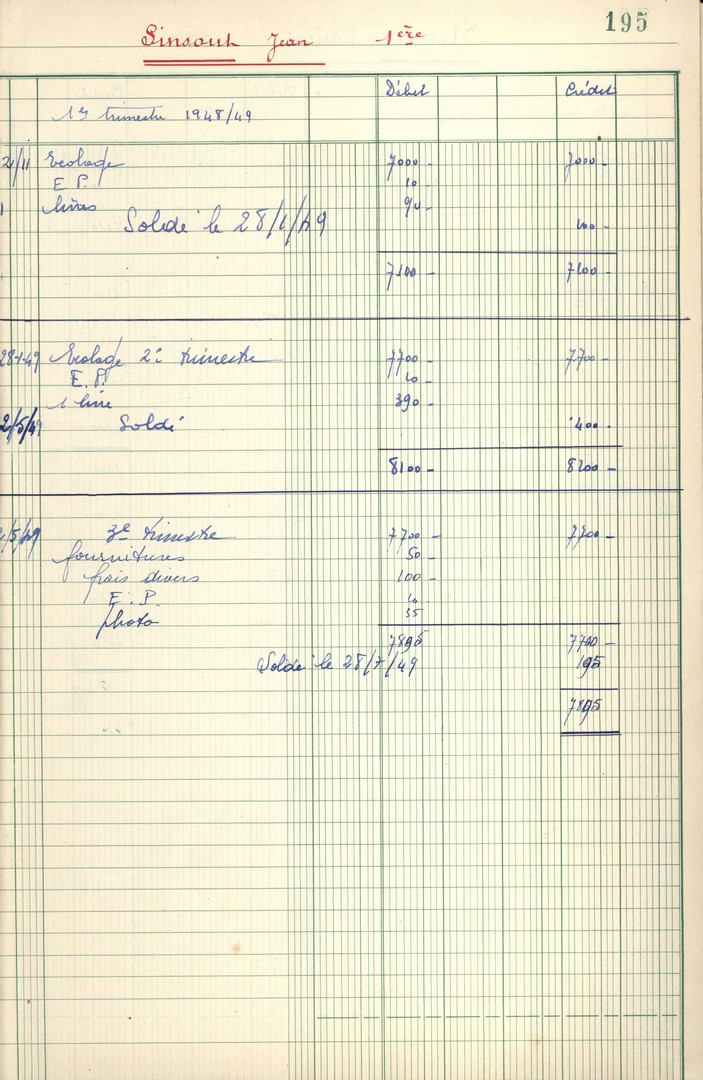 195
Sinsout Jean 1ère
Débit Crédit
1er trimestre 1948/49
2/11 Ecolage 7000 - 7000 -
E P. 10 -
livres 90 -
Soldé le 28/1/49 100 -
7100 - 7100 -
28-1-49 Ecolage 2e trimestre 7700 - 7700 -
E. P. 10 -
1 livre 390 -
2/5/49 Soldé 400 -
8100 - 8100 -
/5/49 3e trimestre 7700 - 7700 -
fournitures 50 -
frais divers 100 -
E. P. 10
photo 35
7895 7700 -
Soldé le 28/7/49 195
7895